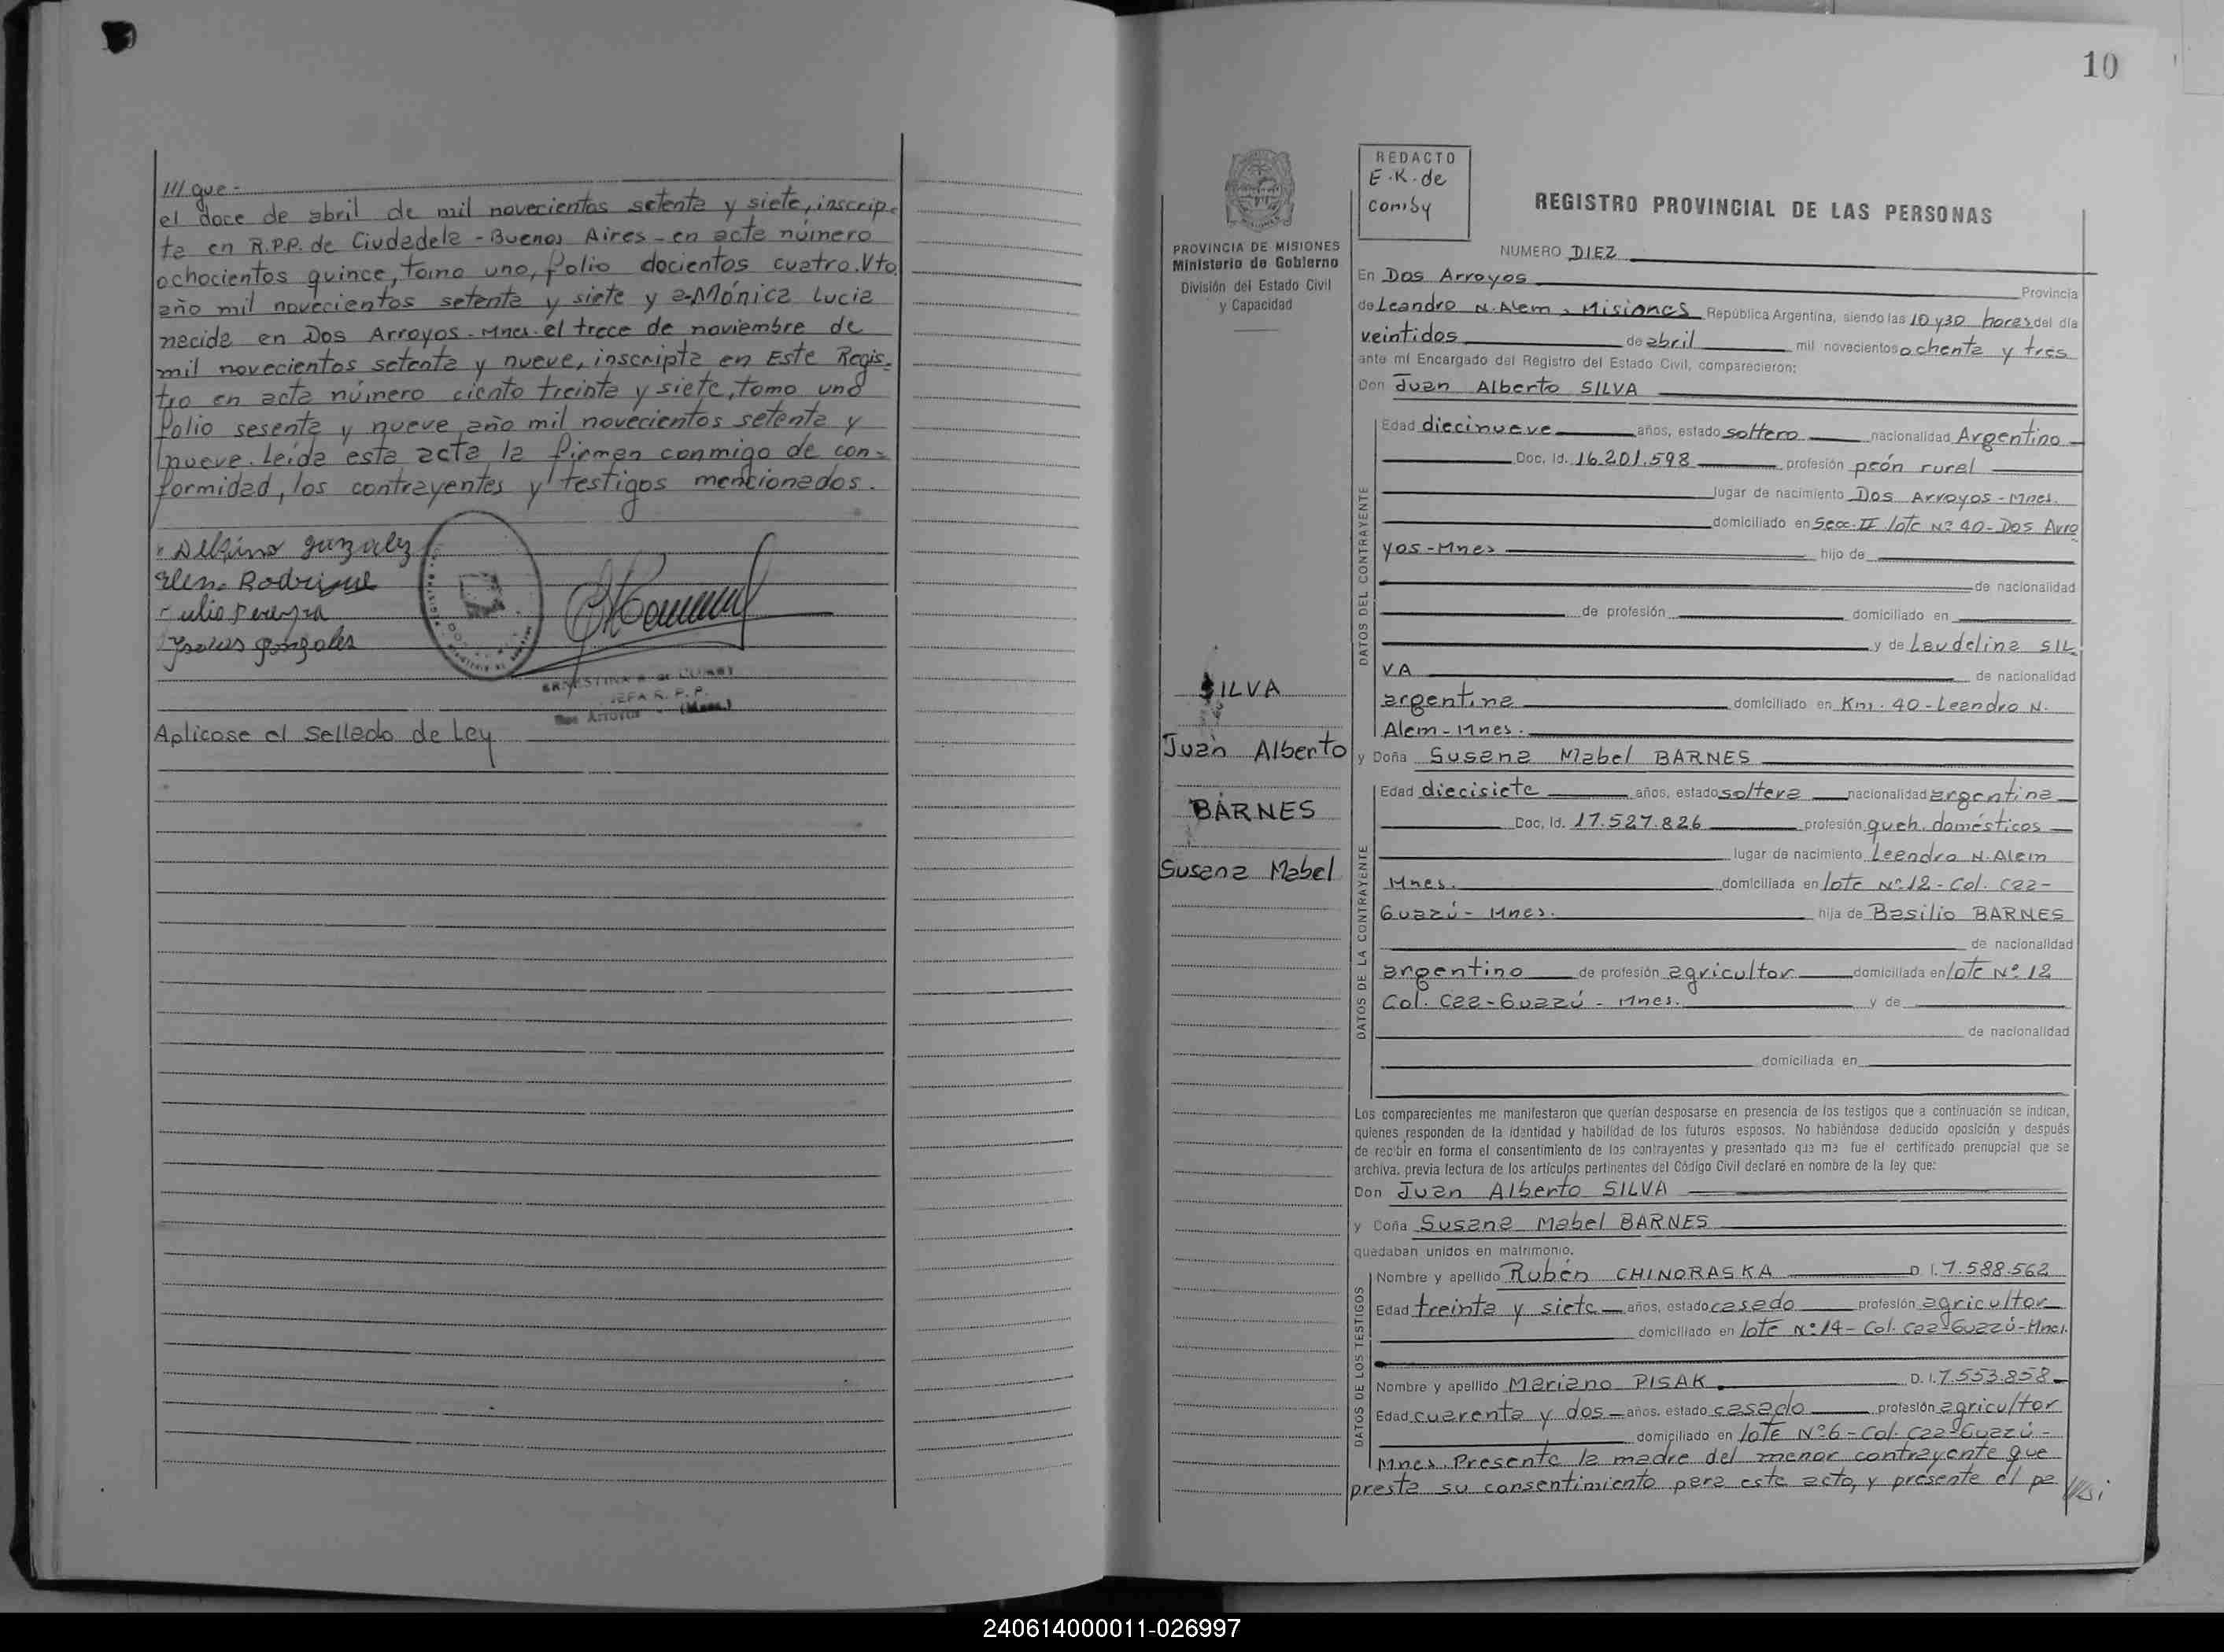 /// que-
el doce de abril de mil novecientos setenta y siete, inscrip-
ta en R.P.P. de Ciudadela - Buenos Aires - en acta número
ochocientos quince, tomo uno, folio docientos cuatro. Vto.
año mil novecientos setenta y siete y a-Mónica Lucia
nacida en Dos Arroyos - Mnes. el trece de noviembre de
mil novecientos setenta y nueve, inscripta en Este Regis-
tro en acta número ciento treinta y siete, tomo uno
folio sesenta y nueve año mil novecientos setenta y
nueve. Leída esta acta la firman conmigo de con-
formidad, los contrayentes y testigos mencionados.
Rodrigue
Julio Pereyra
JEFA R. P. P.
Dos Arroyos (Mnes.)
Aplicase el Sellado de Ley
10
PROVINCIA DE MISIONES
Ministerio de Gobierno
División del Estado Civil
y Capacidad
SILVA
Juan Alberto
BARNES
Susana Mabel
REDACTO
E.K. de
Comby
REGISTRO PROVINCIAL DE LAS PERSONAS
NUMERO DIEZ
En Dos Arroyos Provincia
de Leandro N. Alem, Misiones República Argentina, siendo las 10 y 30 horas del día
veintidos de abril mil novecientos ochenta y tres
ante mí Encargado del Registro del Estado Civil, comparecieron:
Don Juan Alberto SILVA
DATOS DEL CONTRAYENTE
Edad diecinueve años, estado soltero nacionalidad Argentino
Doc. Id. 16.201.598 profesión peón rural
lugar de nacimiento Dos Arroyos - Mnes.
domiciliado en Secc. II lote Nº 40 - Dos Arro
yos - Mnes hijo de
de nacionalidad
de profesión domiciliado en
y de Laudelina SIL
VA de nacionalidad
argentina domiciliado en Km. 40 - Leandro N.
Alem - Mnes.
y Doña Susana Mabel BARNES
DATOS DE LA CONTRAYENTE
Edad diecisiete años, estado soltera nacionalidad argentina
Doc. Id. 17.527.826 profesión queh. domésticos
lugar de nacimiento Leandro N. Alem
Mnes. domiciliada en lote Nº 12 - Col. Caa-
Guazú - Mnes. hija de Basilio BARNES
de nacionalidad
argentino de profesión agricultor domiciliada en lote Nº 12
Col. Caa-Guazú - Mnes. y de
de nacionalidad
domiciliada en
Los comparecientes me manifestaron que querían desposarse en presencia de los testigos que a continuación se indican,
quienes responden de la identidad y habilidad de los futuros esposos. No habiéndose deducido oposición y después
de recibir en forma el consentimiento de los contrayentes y presentado que me fue el certificado prenupcial que se
archiva, previa lectura de los artículos pertinentes del Código Civil declaré en nombre de la ley que:
Don Juan Alberto SILVA
y Doña Susana Mabel BARNES
quedaban unidos en matrimonio.
DATOS DE LOS TESTIGOS
Nombre y apellido Rubén CHINORASKA D. I. 7.588.562
Edad treinta y siete años, estado casado profesión agricultor
domiciliado en lote Nº 14 - Col. Caa-Guazú - Mnes.
Nombre y apellido Mariano PISAK. D. I. 7.553.858
Edad cuarenta y dos años, estado casado profesión agricultor
domiciliado en lote Nº 6 - Col. Caa-Guazú -
Mnes. Presente la madre del menor contrayente que
presta su consentimiento para este acto, y presente el pa
240614000011-026997